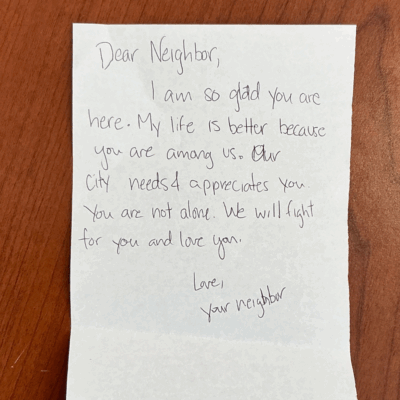 Dear Neighbor,
I am so glad you are
here. My life is better because
you are among us. Our
city needs & appreciates you.
You are not alone. We will fight
for you and love you.
Love,
your neighbor